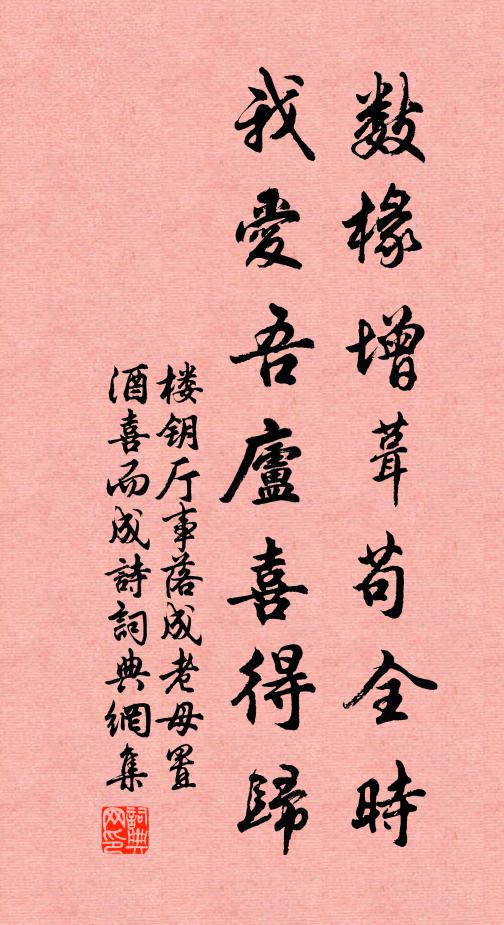 数椽增葺苟全時
我愛吾廬喜得歸
楼钥厅事落成老母置
酒喜而成詩詞典網集
詞典网印